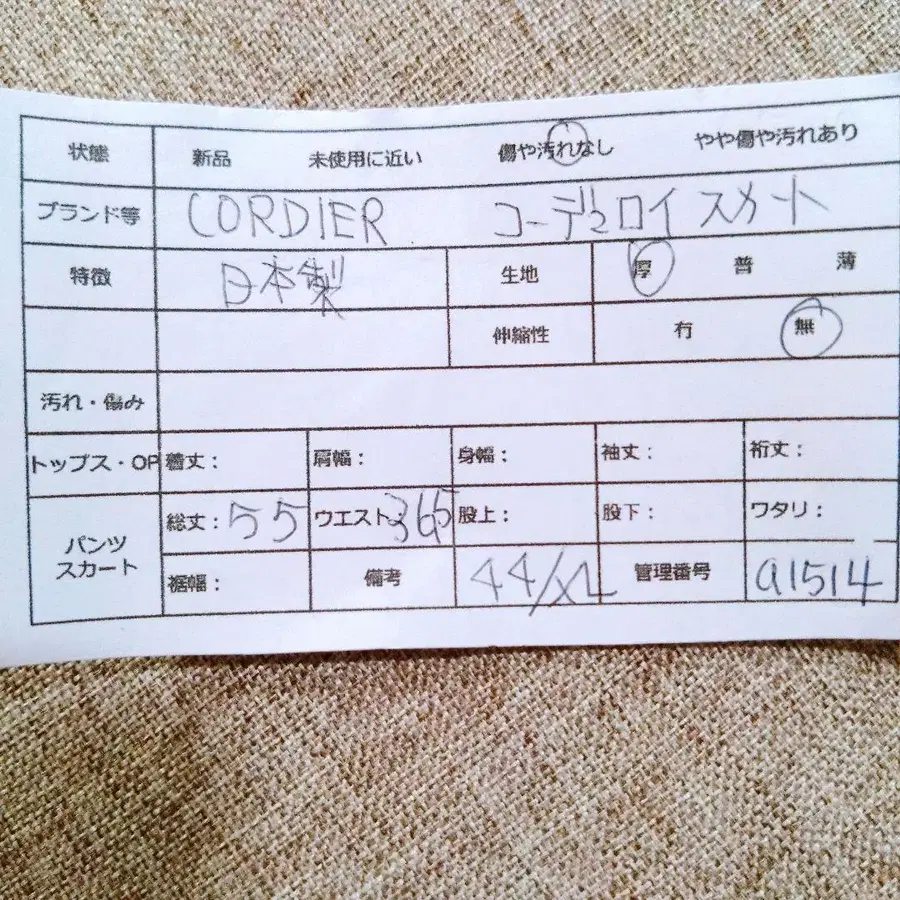 状態 新品 未使用に近い 傷や汚れなし やや傷や汚れあり
ブランド等 CORDIER コーデュロイ スカート
特徴 日本製 生地 厚 普 薄
伸縮性 有 無
汚れ・傷み
トップス・OP 着丈: 肩幅: 身幅: 袖丈: 裄丈:
パンツ スカート 総丈:55 ウエスト365 股上: 股下: ワタリ:
裾幅: 備考 44/XL 管理番号 a1514